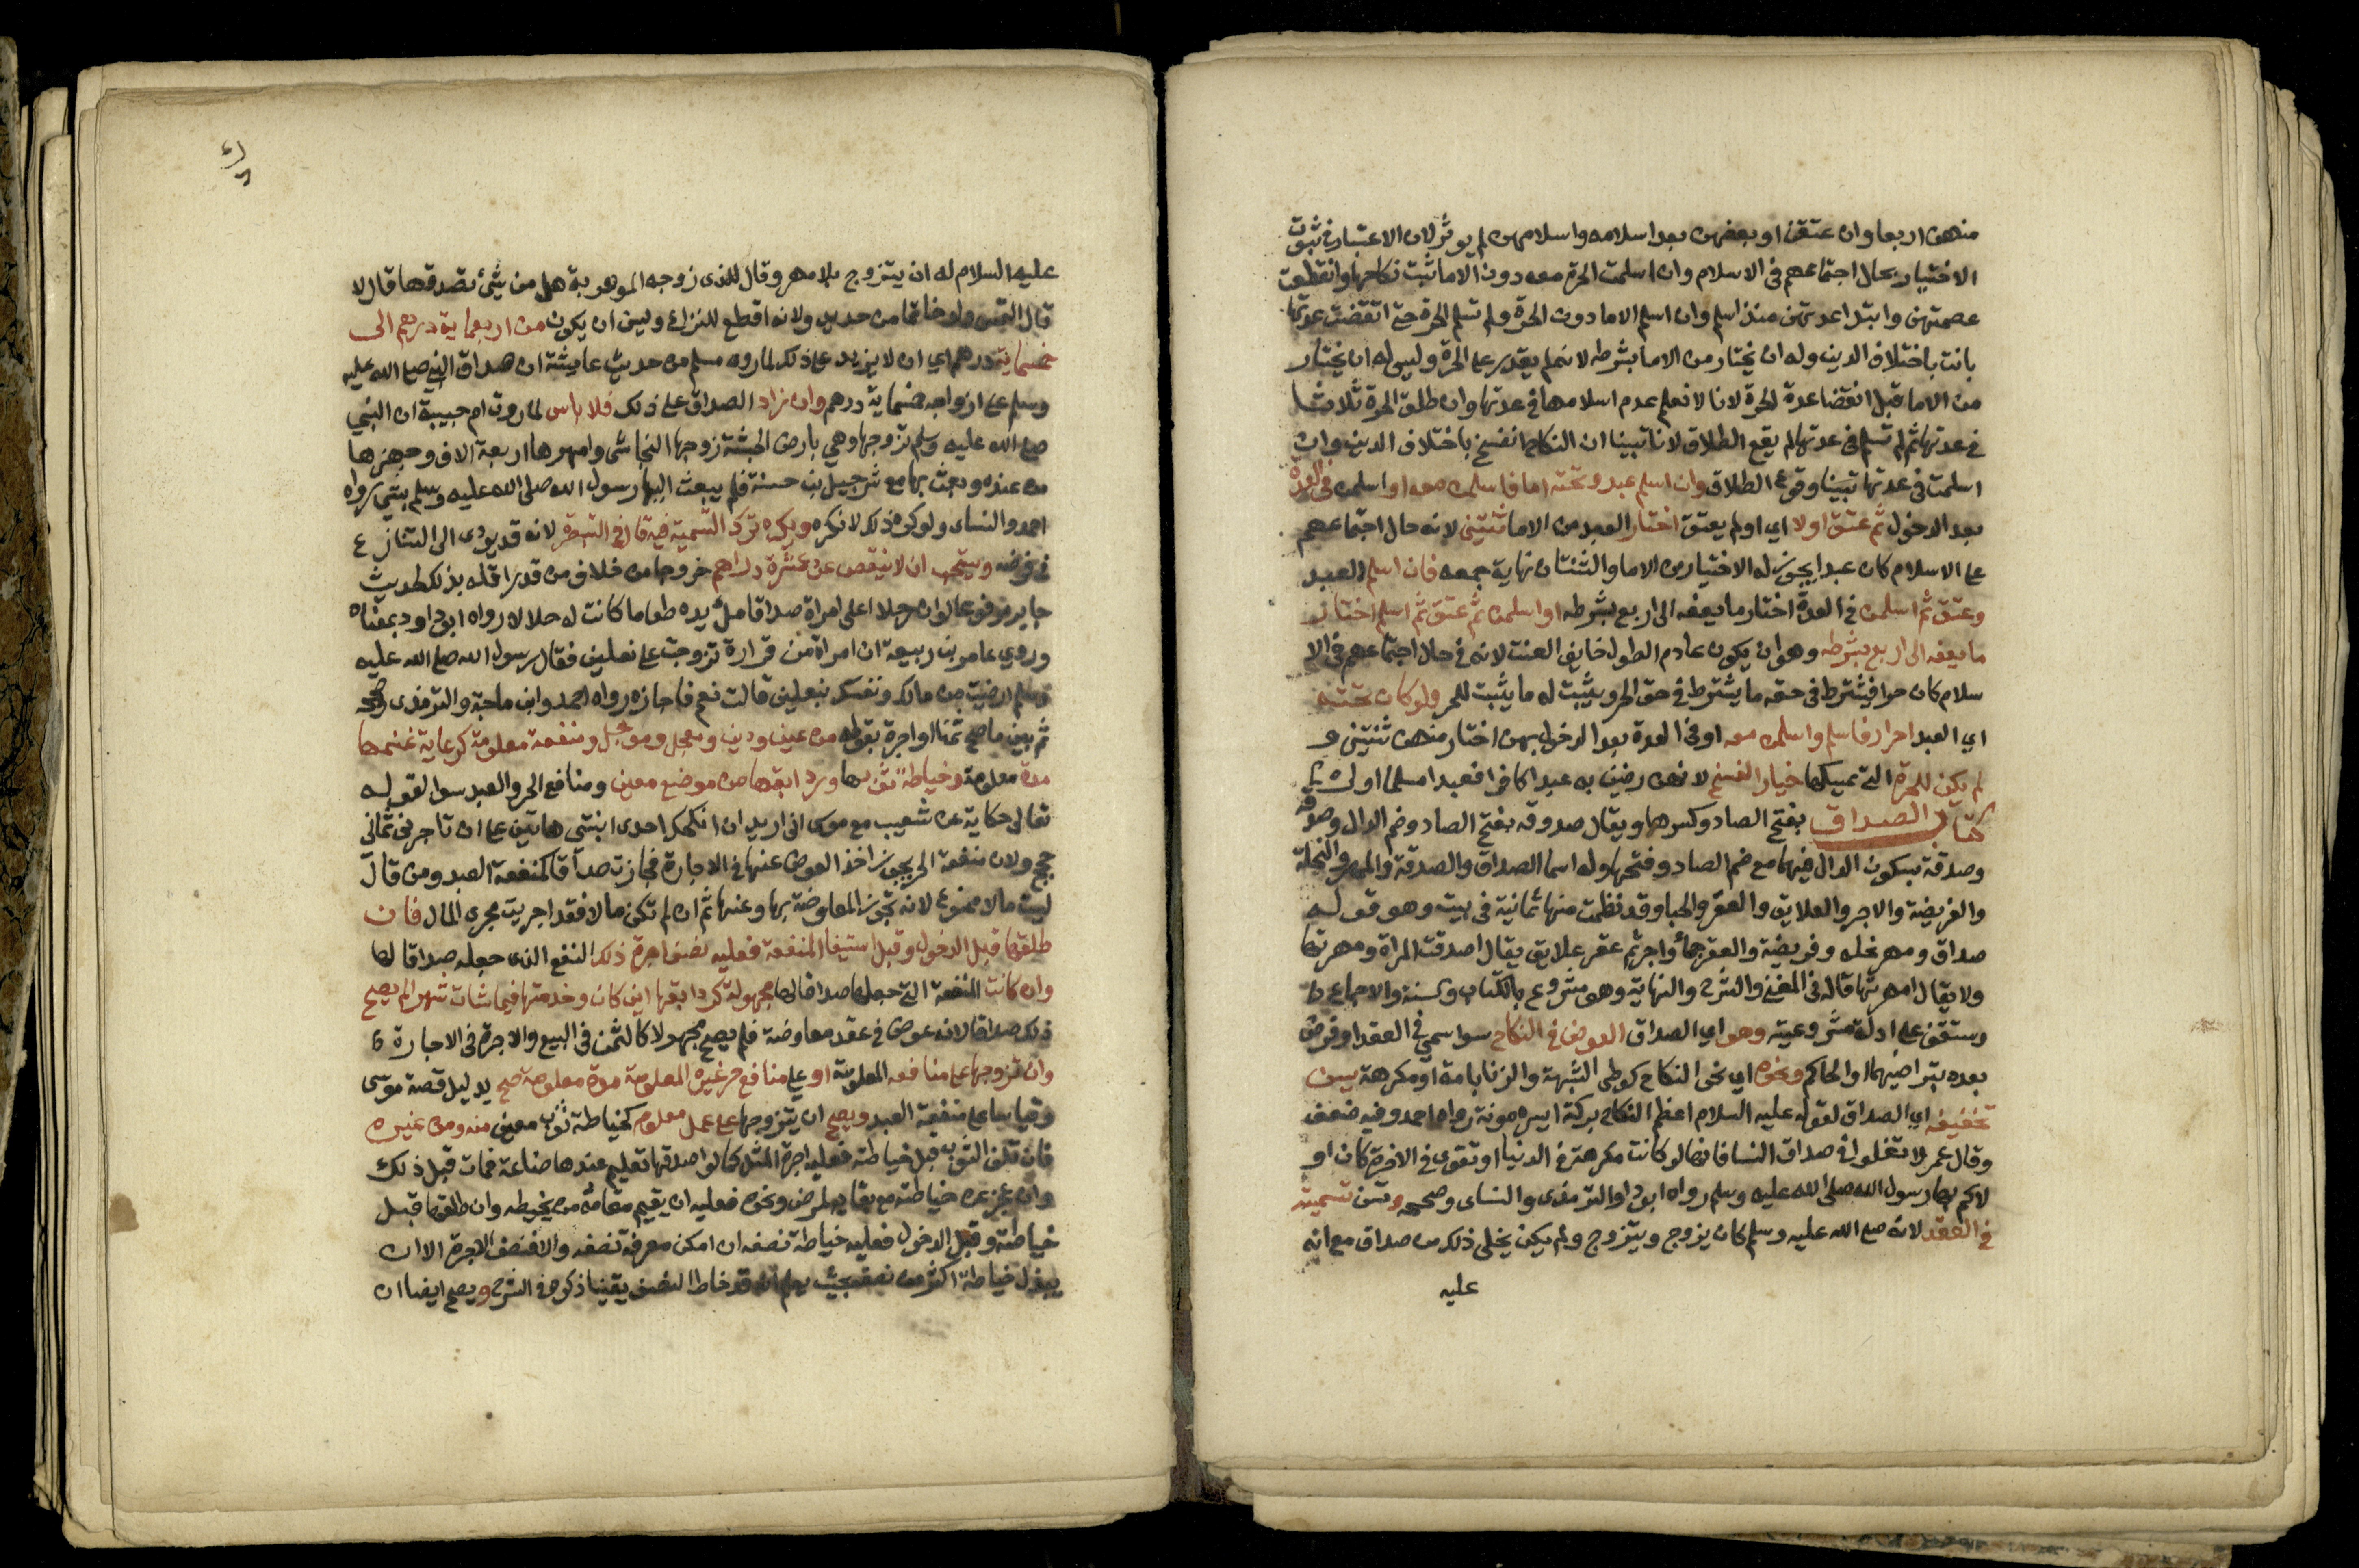 منهن اربعا وان عتقن او بعضهن بعد اسلامه واسلامهن لم يوثر لان الاعتبار في ثبوت
الاختيار بحال اجتماعهم في الاسلام وان اسلمت الحرة معه دون الاما ثبت نكاحها وانقطعت
عصمتهن وابتدا عدتهن منذ اسلم وان اسلم الاما دون الحرة ولم تسلم الحرة حتى انقضت عدتها
بانت باختلاف الدين وله ان يختار من الاما بشرطه لانه لم يقدر على الحرة وليس له ان يختار
من الاما قبل انقضا عدة الحرة لانا لا نعلم عدم اسلامها في عدتها وان طلق الحرة ثلاثا
في عدتها ثم لم تسلم في عدتها لم يقع الطلاق لانا تبينا ان النكاح انفسخ باختلاف الدين وان
اسلمت في عدتها تبينا وقوع الطلاق وان اسلم عبد وتحته اما فاسلمن معه او اسلمن في العدة
بعد الدخول ثم عتق اولا اي او لم يعتق اختار العبد من الاما ثنتين لانه حال اجتماعهم
على الاسلام كان عبدا يجوز له الاختيار من الاما والثنتان نهاية جمعه فان اسلم العبد
وعتق ثم اسلمن في العدة اختار ما يعفه الى اربع بشرطه او اسلمن ثم عتق ثم اسلم اختار
ما يعفه الى اربع بشرطه وهو ان يكون عادم الطول خايف العنت لانه في حال اجتماعهم في الا
سلام كان حرا فيشترط في حقه ما يشترط في حق الحر ويثبت له ما يثبت للحر ولو كان تحته
اي العبد احرار فاسلم واسلمن معه او في العدة بعد الدخول بهن اختار منهن ثنتين و
لم يكن للحرة التي يمسكها خيار الفسخ لانهن رضين به عبدا كافرا فعبدا مسلما اولى
كتاب الصداق بفتح الصاد وكسرها ويقال صدوقه بفتح الصاد وضم الدال وصدقة
وصدقة بسكون الدال فيهما مع ضم الصاد وفتحها وله اسما الصداق والصدقة والمهر والنحلة
والفريضة والاجر والعلايق والعقر والحبا وقد نظمت منها ثمانية في بيت وهو قوله
صداق ومهر نحله وفريضة والعقر حبأ واجر ثم عقر علايق يقال اصدقت المراة ومهرتها
ولا يقال امهرتها قاله في المغني والشرح والنهاية وهو مشروع بالكتاب والسنة والاجماع
وستقف على ادلة مشروعيته وهو اي الصداق العوض في النكاح سوا سمي في العقد او فرض
بعده بتراضيهما او الحاكم ونحوه اي نحو النكاح كوطي الشبهة والزنا بامة او مكرهة يسن
تخفيفه اي الصداق لقوله عليه السلام اعظم النكاح بركة ايسره مونة رواه احمد وفيه ضعف
وقال عمر لا تغلوا في صداق النسا فانها لو كانت مكرمة في الدنيا او تقوى في الاخرة كان او
لاكم بها رسول الله صلى الله عليه وسلم رواه ابو داود والترمذي والنساي وصححه وتسن تسميته
في العقد لانه صلى الله عليه وسلم كان يزوج ويتزوج ولم يكن يخلي ذلك من صداق مع انه
عليه
عليه السلام له ان يتزوج بلا مهر وقال للذي زوجه الموهوبة هل من شئ تصدقها قال لا
قال التمس ولو خاتما من حديد ولانه اقطع للنزاع ويسن ان يكون من اربعماية درهم الى
خمسماية درهم اي ان لا يزيد على ذلك لما روى مسلم من حديث عايشة ان صداق النبي صلى الله عليه
وسلم على ازواجه خمسماية درهم وان زاد الصداق على ذلك فلا باس لما روت ام حبيبة ان النبي
صلى الله عليه وسلم تزوجها وهي بارض الحبشة زوجها النجاشى وامهرها اربعة الاف وجهزها
من عنده وبعث بها مع شرحبيل بن حسنة فلم يبعث اليها رسول الله صلى الله عليه وسلم بشي رواه
احمد والنساي ولو كره ذلك لانكره ويكره ترك التسمية فيه قاله في التبصرة لانه قد يودي الى التنازع
في فرضه ويستحب ان لا ينقص عن عشرة دراهم خروجا من خلاف من قدر اقله بذلك لحديث
جابر مرفوعا لو ان رجلا اعطى امراة صداقا مل يده طعاما كانت له حلالا رواه ابو داود بمعناه
وروي عامر بن ربيعة ان امراة من فزارة تزوجت على نعلين فقال رسول الله صلى الله عليه
وسلم ارضيت من مالك ونفسك بنعلين قالت نعم فاجازه رواه احمد وابن ماجة والترمذي وصححه
ثم بين ما صح ثمنا او اجرة بقوله من عين ودين ومعجل وموجل ومنفعة معلومة كرعاية غنمها
مدة معلومة وخياطة ثوبها ورد ابقها من موضع معين ومنافع الحر والعبد سوا لقوله
تعالى حكاية عن شعيب مع موسى اني اريد ان انكحك احدى ابنتي هاتين على ان تاجرني ثماني
حجج ولان منفعة الحر يجوز اخذ العوض عنها في الاجارة فجازت صداقا كمنفعة العبد ومن قال
ليست مالا ممنوع لانه تجوز المعاوضة بها وعنها ثم ان لم تكن مالا فقد اجريت مجرى المال فان
طلقها قبل الدخول وقبل استيفا المنفعة فعليه نصف اجرة ذلك النفع الذي جعله صداقا لها
وان كانت المنفعة التي جعلها صداقا لها مجهولة كرد ابقها اين كان وخدمتها فيما شات شهرا لم يصح
ذلك صداقا لانه عوض في عقد معاوضة فلم يصح مجهولا كالثمن في البيع والاجرة في الاجارة
وان تزوجها على منافعه المعلومة او على منافع حر غيره المعلومة مدة معلومة صح بدليل قصة موسى
وقياسا على منفعة العبد ويصح ان يتزوجها على عمل معلوم كخياطة ثوب معين منه ومن غيره
فان تلف الثوب قبل خياطته فعليه اجرة المثل كما لو اصدقها تعليم عندها صناعة فمات قبل ذلك
وان عجز عن خياطته مع بقايه لمرض ونحوه فعليه ان يقيم مقامه من يخيطه وان طلقها قبل
خياطته وقبل الدخول فعليه خياطة نصفه ان امكن معرفة نصفه والا فنصف الاجرة الا ان
يبذل خياطة اكثر من نصفه بحيث يعلم انه قد خاط النصف يقينا ذكره في الشرح ويصح ايضا ان